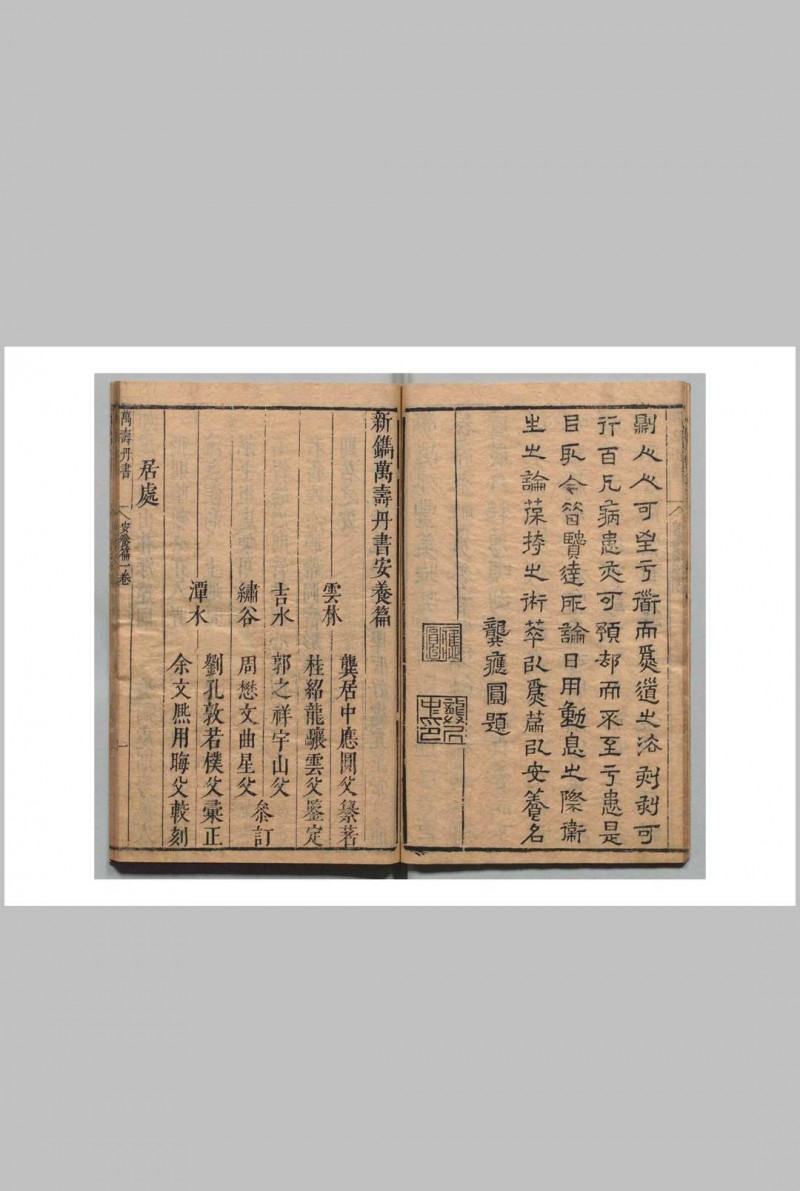 心心可望亏衜而爲道之法剥剥可
行百凡病患亦可預却而不至亏患是
目取今簡賢達所論日用動息之際衛
生之論葆持之術萃以爲篇以安養名
龔應圓題
應圓
新鐫萬壽丹書安養篇
雲林 龔居中應圓父纂著
桂紹龍驤雲父鑒定
吉水 郭之祥宇山父
繡谷 周懋文曲星父 參訂
劉孔敦若樸父彙正
潭水
余文熈用晦父較刻
居處
萬壽丹書 安養篇一卷